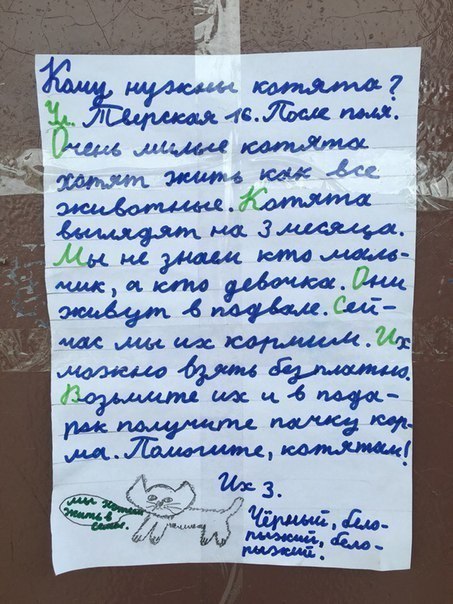 Кому нужны котята?
Ул. Тверская 16. После поля.
Очень милые котята
хотят жить как все
животные. Котята
выглядят на 3 месяца.
Мы не знаем кто маль-
чик, а кто девочка. Они
живут в подвале. Сей-
час мы их кормим. Их
можно взять бесплатно.
Возьмите их и в пода-
рок получите пачку кор-
ма. Помогите, котятам!
Их 3.
Чёрный, бело-
рыжий, бело-
рыжий.
мы хотим
жить в
семье.